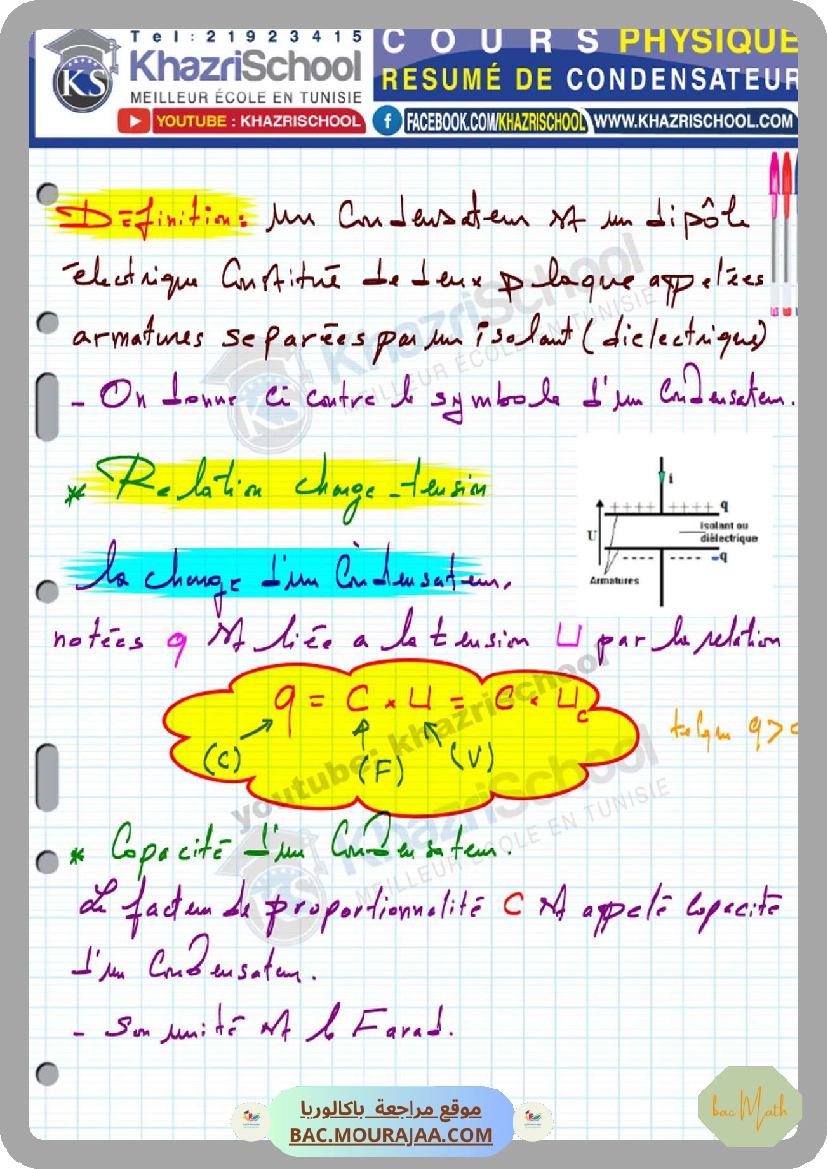 Tel:21923415
KhazriSchool
MEILLEUR ÉCOLE EN TUNISIE
YOUTUBE : KHAZRISCHOOL
COURS PHYSIQUE
RESUMÉ DE CONDENSATEUR
FACEBOOK.COM/KHAZRISCHOOL WWW.KHAZRISCHOOL.COM
KS
Définition: Un Condensateur est un dipôle
électrique Constitué de deux plaque appelées
armatures separées par un isolant (dielectrique)
- On donne ci contre le symbole d'un Condensateur.
* Relation charge-tension
i
+ + + + + + q
U
isolant ou
diélectrique
- - - - - - -q
Armatures
la charge d'un Condensateur,
notées q est liée a la tension U par la relation
q = C × U = C × Uc
(C) (F) (V)
telque q > 0
* Capacité d'un Condensateur.
Le facteur de proportionnalité C est appelé Capacité
d'un Condensateur.
- Son unité est le Farad.
KhazriSchool
MEILLEUR ÉCOLE EN TUNISIE
youtube: khazrischool
KhazriSchool
MEILLEUR ÉCOLE EN TUNISIE
موقع مراجعة باكالوريا
BAC.MOURAJAA.COM
bac Math